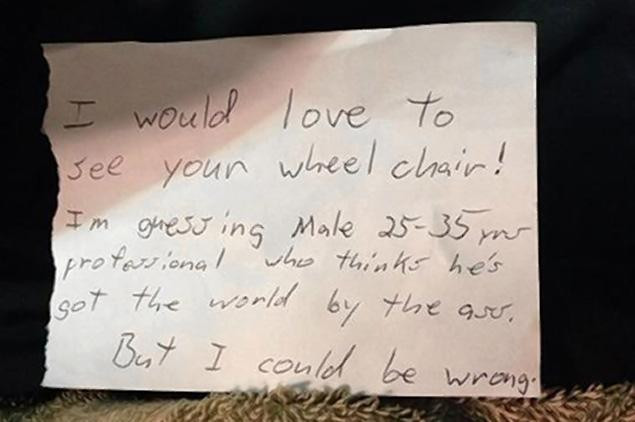 I would love to
see your wheel chair!
Im guessing Male 25-35 yrs
professional who thinks he's
got the world by the ass.
But I could be wrong.